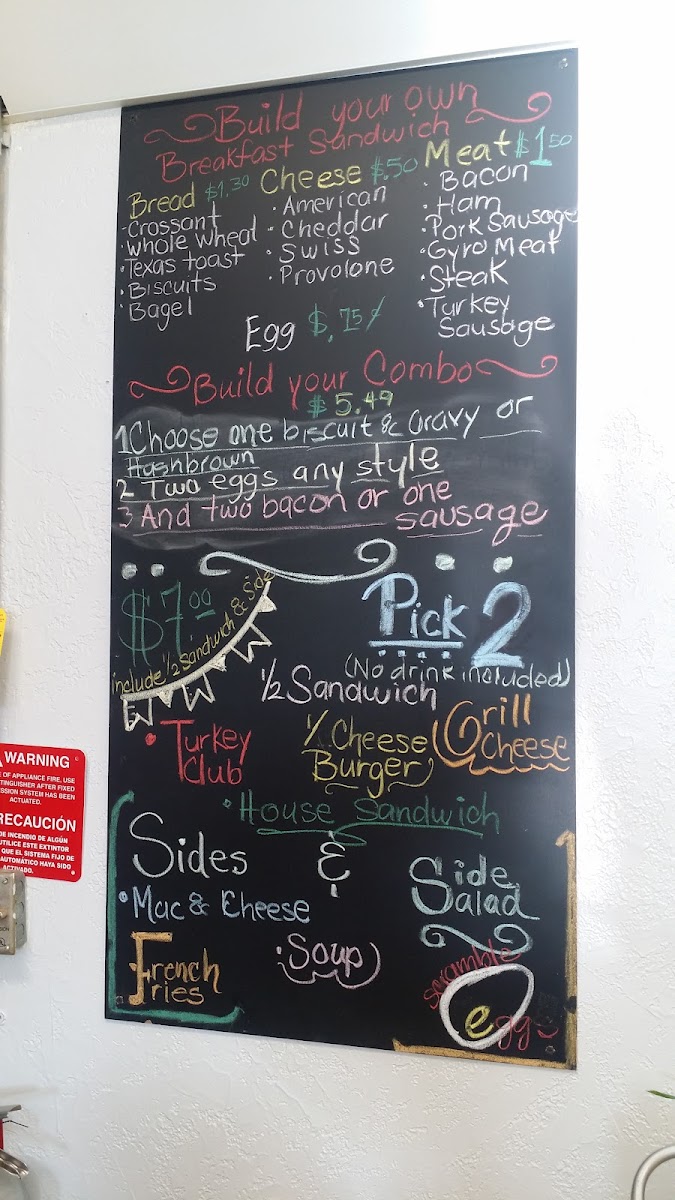 Build your own
Breakfast Sandwich
Bread $1.30
·Crossant
·Whole wheat
·Texas toast
·Biscuits
·Bagel
Cheese $.50
·American
·Cheddar
·Swiss
·Provolone
Meat $1.50
·Bacon
·Ham
·Pork Sausage
·Gyro Meat
·Steak
·Turkey
Sausage
Egg $.75¢
Build your Combo
$5.49
1 Choose one biscuit & Gravy or
Hashbrown
2 Two eggs any style
3 And two bacon or one
sausage
$7.00
include 1/2 Sandwich & Side
Pick 2
(No drink included)
1/2 Sandwich
·Turkey
Club
Cheese
Burger
Grill
Cheese
·House Sandwich
Sides
&
·Mac & Cheese
Side
Salad
French
Fries
·Soup
scramble
egg
WARNING
OF APPLIANCE FIRE, USE
ACTUATED.
DE INCENDIO DE ALGÚN
UTILICE ESTE EXTINTOR
QUE EL SISTEMA FIJO DE
AUTOMÁTICO HAYA SIDO
ACTIVADO.